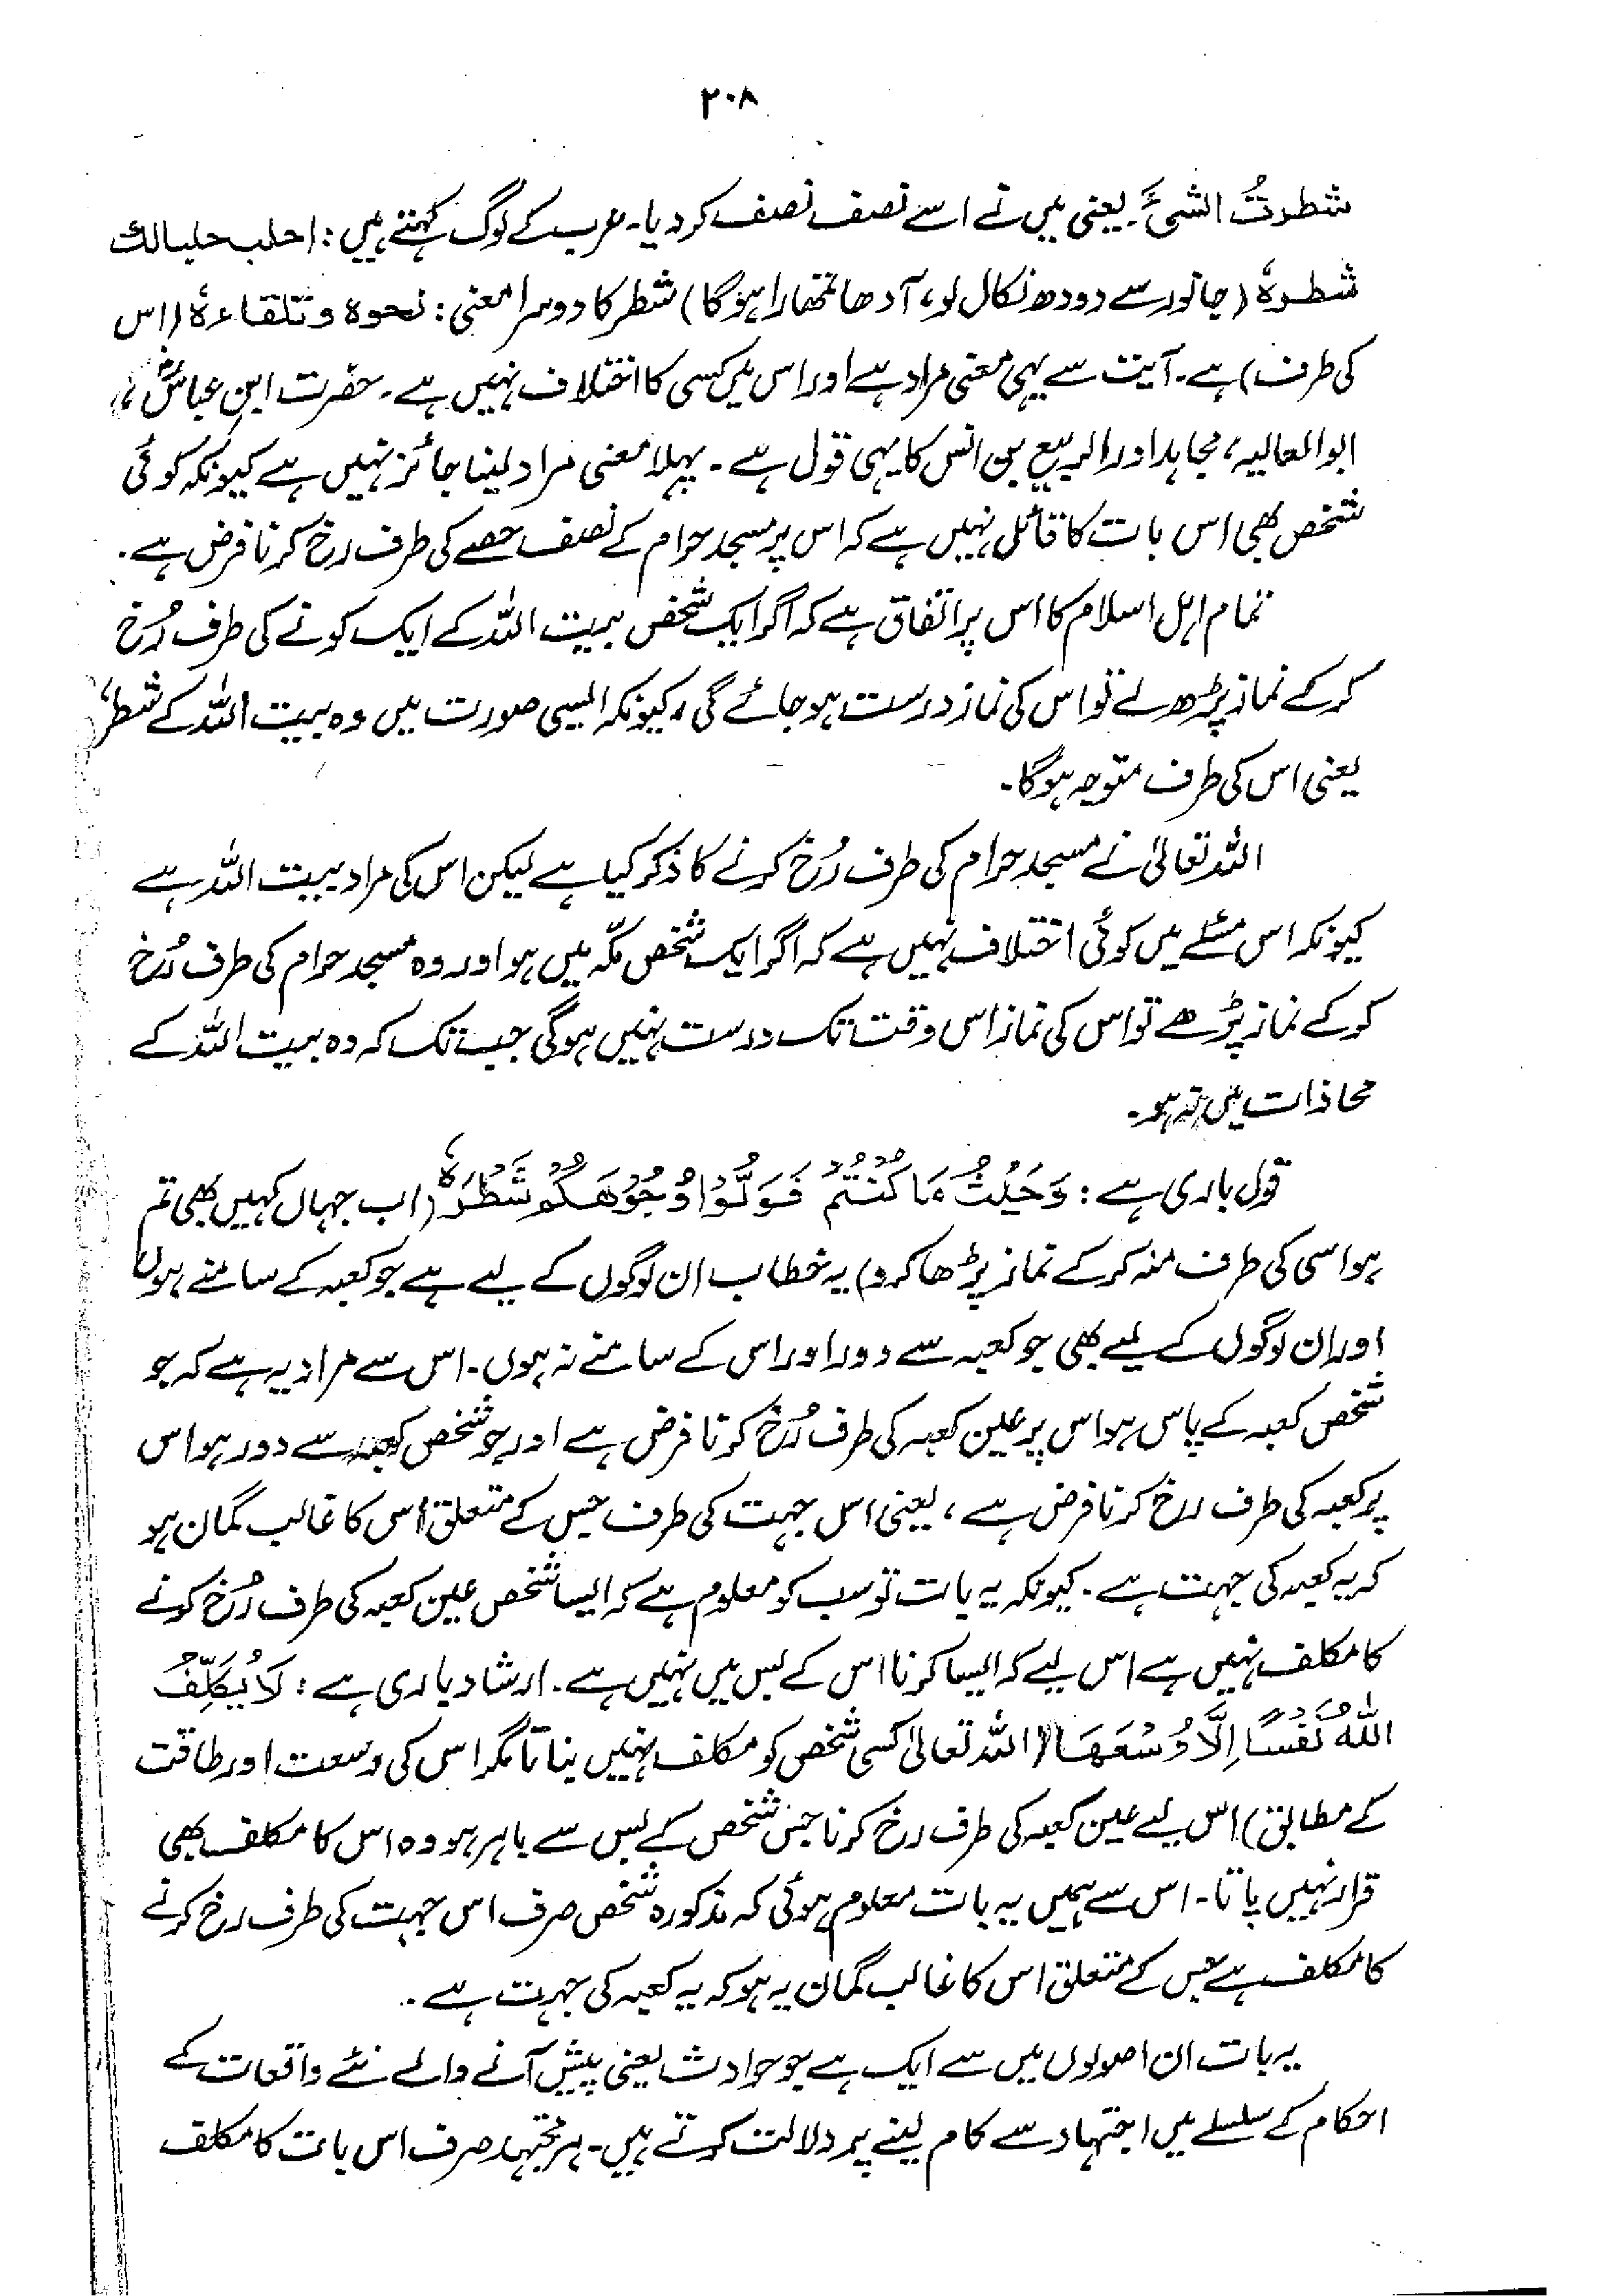 ۲۰۸
شطرتُ الشیَٔ۔ یعنی میں نے اسے نصف نصف کر دیا۔ عرب کے لوگ کہتے ہیں: احلب حلبا لك
شطرہٗ (جانور سے دودھ نکال لو، آدھا تمھارا ہوگا) شطر کا دوسرا معنی: نحوہ وتلقاءہٗ (اس
کی طرف) ہے۔ آیت سے یہی معنی مراد ہے اور اس میں کسی کا اختلاف نہیں ہے۔ حضرت ابنِ عباسؓ،
ابوالعالیہ، مجاہد اور الربیع بن انس کا یہی قول ہے۔ پہلا معنی مراد لینا جائز نہیں ہے کیونکہ کوئی
شخص بھی اس بات کا قائل نہیں ہے کہ اس پر مسجد حرام کے نصف حصے کی طرف رخ کرنا فرض ہے۔
تمام اہل اسلام کا اس پر اتفاق ہے کہ اگر ایک شخص بیت اللہ کے ایک کونے کی طرف رُخ
کر کے نماز پڑھ لے تو اس کی نماز درست ہو جائے گی، کیونکہ ایسی صورت میں وہ بیت اللہ کے شطر،
یعنی اس کی طرف متوجہ ہوگا۔
اللہ تعالیٰ نے مسجد حرام کی طرف رُخ کرنے کا ذکر کیا ہے لیکن اس کی مراد بیت اللہ ہے
کیونکہ اس مسئلے میں کوئی اختلاف نہیں ہے کہ اگر ایک شخص مکّہ میں ہو اور وہ مسجد حرام کی طرف رُخ
کر کے نماز پڑھے تو اس کی نماز اس وقت تک درست نہیں ہوگی جب تک کہ وہ بیت اللہ کے
محاذات میں نہ ہو۔
قول باری ہے: وَحَيْثُ مَا كُنْتُمْ فَوَلُّوْا وُجُوْهَكُمْ شَطْرَهٗ (اب جہاں کہیں بھی تم
ہو اسی کی طرف منہ کر کے نماز پڑھا کرو) یہ خطاب ان لوگوں کے لیے ہے جو کعبہ کے سامنے ہوں
اور ان لوگوں کے لیے بھی جو کعبہ سے دور اور اس کے سامنے نہ ہوں۔ اس سے مراد یہ ہے کہ جو
شخص کعبہ کے پاس ہو اس پر عین کعبہ کی طرف رُخ کرنا فرض ہے اور جو شخص کعبہ سے دور ہو اس
پر کعبہ کی طرف رخ کرنا فرض ہے، یعنی اس جہت کی طرف جس کے متعلق اس کا غالب گمان ہو
کہ یہ کعبہ کی جہت ہے۔ کیونکہ یہ بات تو سب کو معلوم ہے کہ ایسا شخص عین کعبہ کی طرف رُخ کرنے
کا مکلف نہیں ہے اس لیے کہ ایسا کرنا اس کے بس میں نہیں ہے۔ ارشاد باری ہے: لَا يُكَلِّفُ
اللهُ نَفْسًا اِلَّا وُسْعَهَا (اللہ تعالیٰ کسی شخص کو مکلف نہیں بناتا مگر اس کی وسعت اور طاقت
کے مطابق) اس لیے عین کعبہ کی طرف رخ کرنا جس شخص کے بس سے باہر ہو وہ اس کا مکلف بھی
قرار نہیں پاتا۔ اس سے ہمیں یہ بات معلوم ہوئی کہ مذکورہ شخص صرف اس جہت کی طرف رخ کرنے
کا مکلف ہے جس کے متعلق اس کا غالب گمان یہ ہو کہ یہ کعبہ کی جہت ہے۔
یہ بات ان اصولوں میں سے ایک ہے جو حوادث یعنی پیش آنے والے نئے واقعات کے
احکام کے سلسلے میں اجتہاد سے کام لینے پر دلالت کرتے ہیں۔ ہر مجتہد صرف اس بات کا مکلف